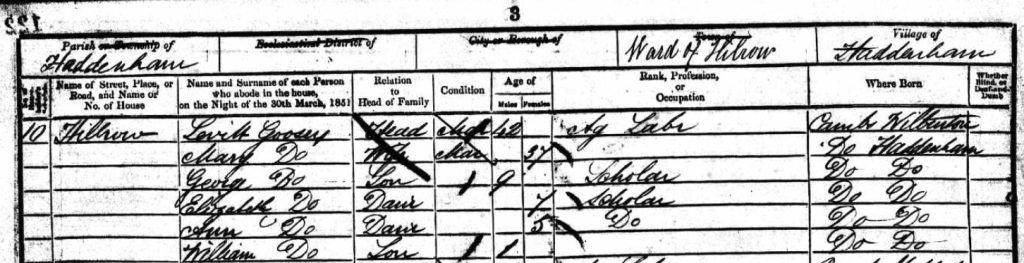 3
Parish or Township of Haddenham
Ecclesiastical District of
City or Borough of
Town of Ward of Hilrow
Village of Haddenham
Name of Street, Place, or Road, and Name or No. of House
Name and Surname of each Person who abode in the house, on the Night of the 30th March, 1851
Relation to Head of Family
Condition
Age of
Males Females
Rank, Profession, or Occupation
Where Born
Whether Blind, or Deaf-and-Dumb
10 Hillrow Levitt Goosey Head Mar 42 Ag Labr Cambs Wilburton
Mary Do Wife Mar 37 Do Haddenham
George Do Son 9 Scholar Do Do
Elizabeth Do Daur 7 Scholar Do Do
Ann Do Daur 5 Do Do Do
William Do Son 1 Do Do